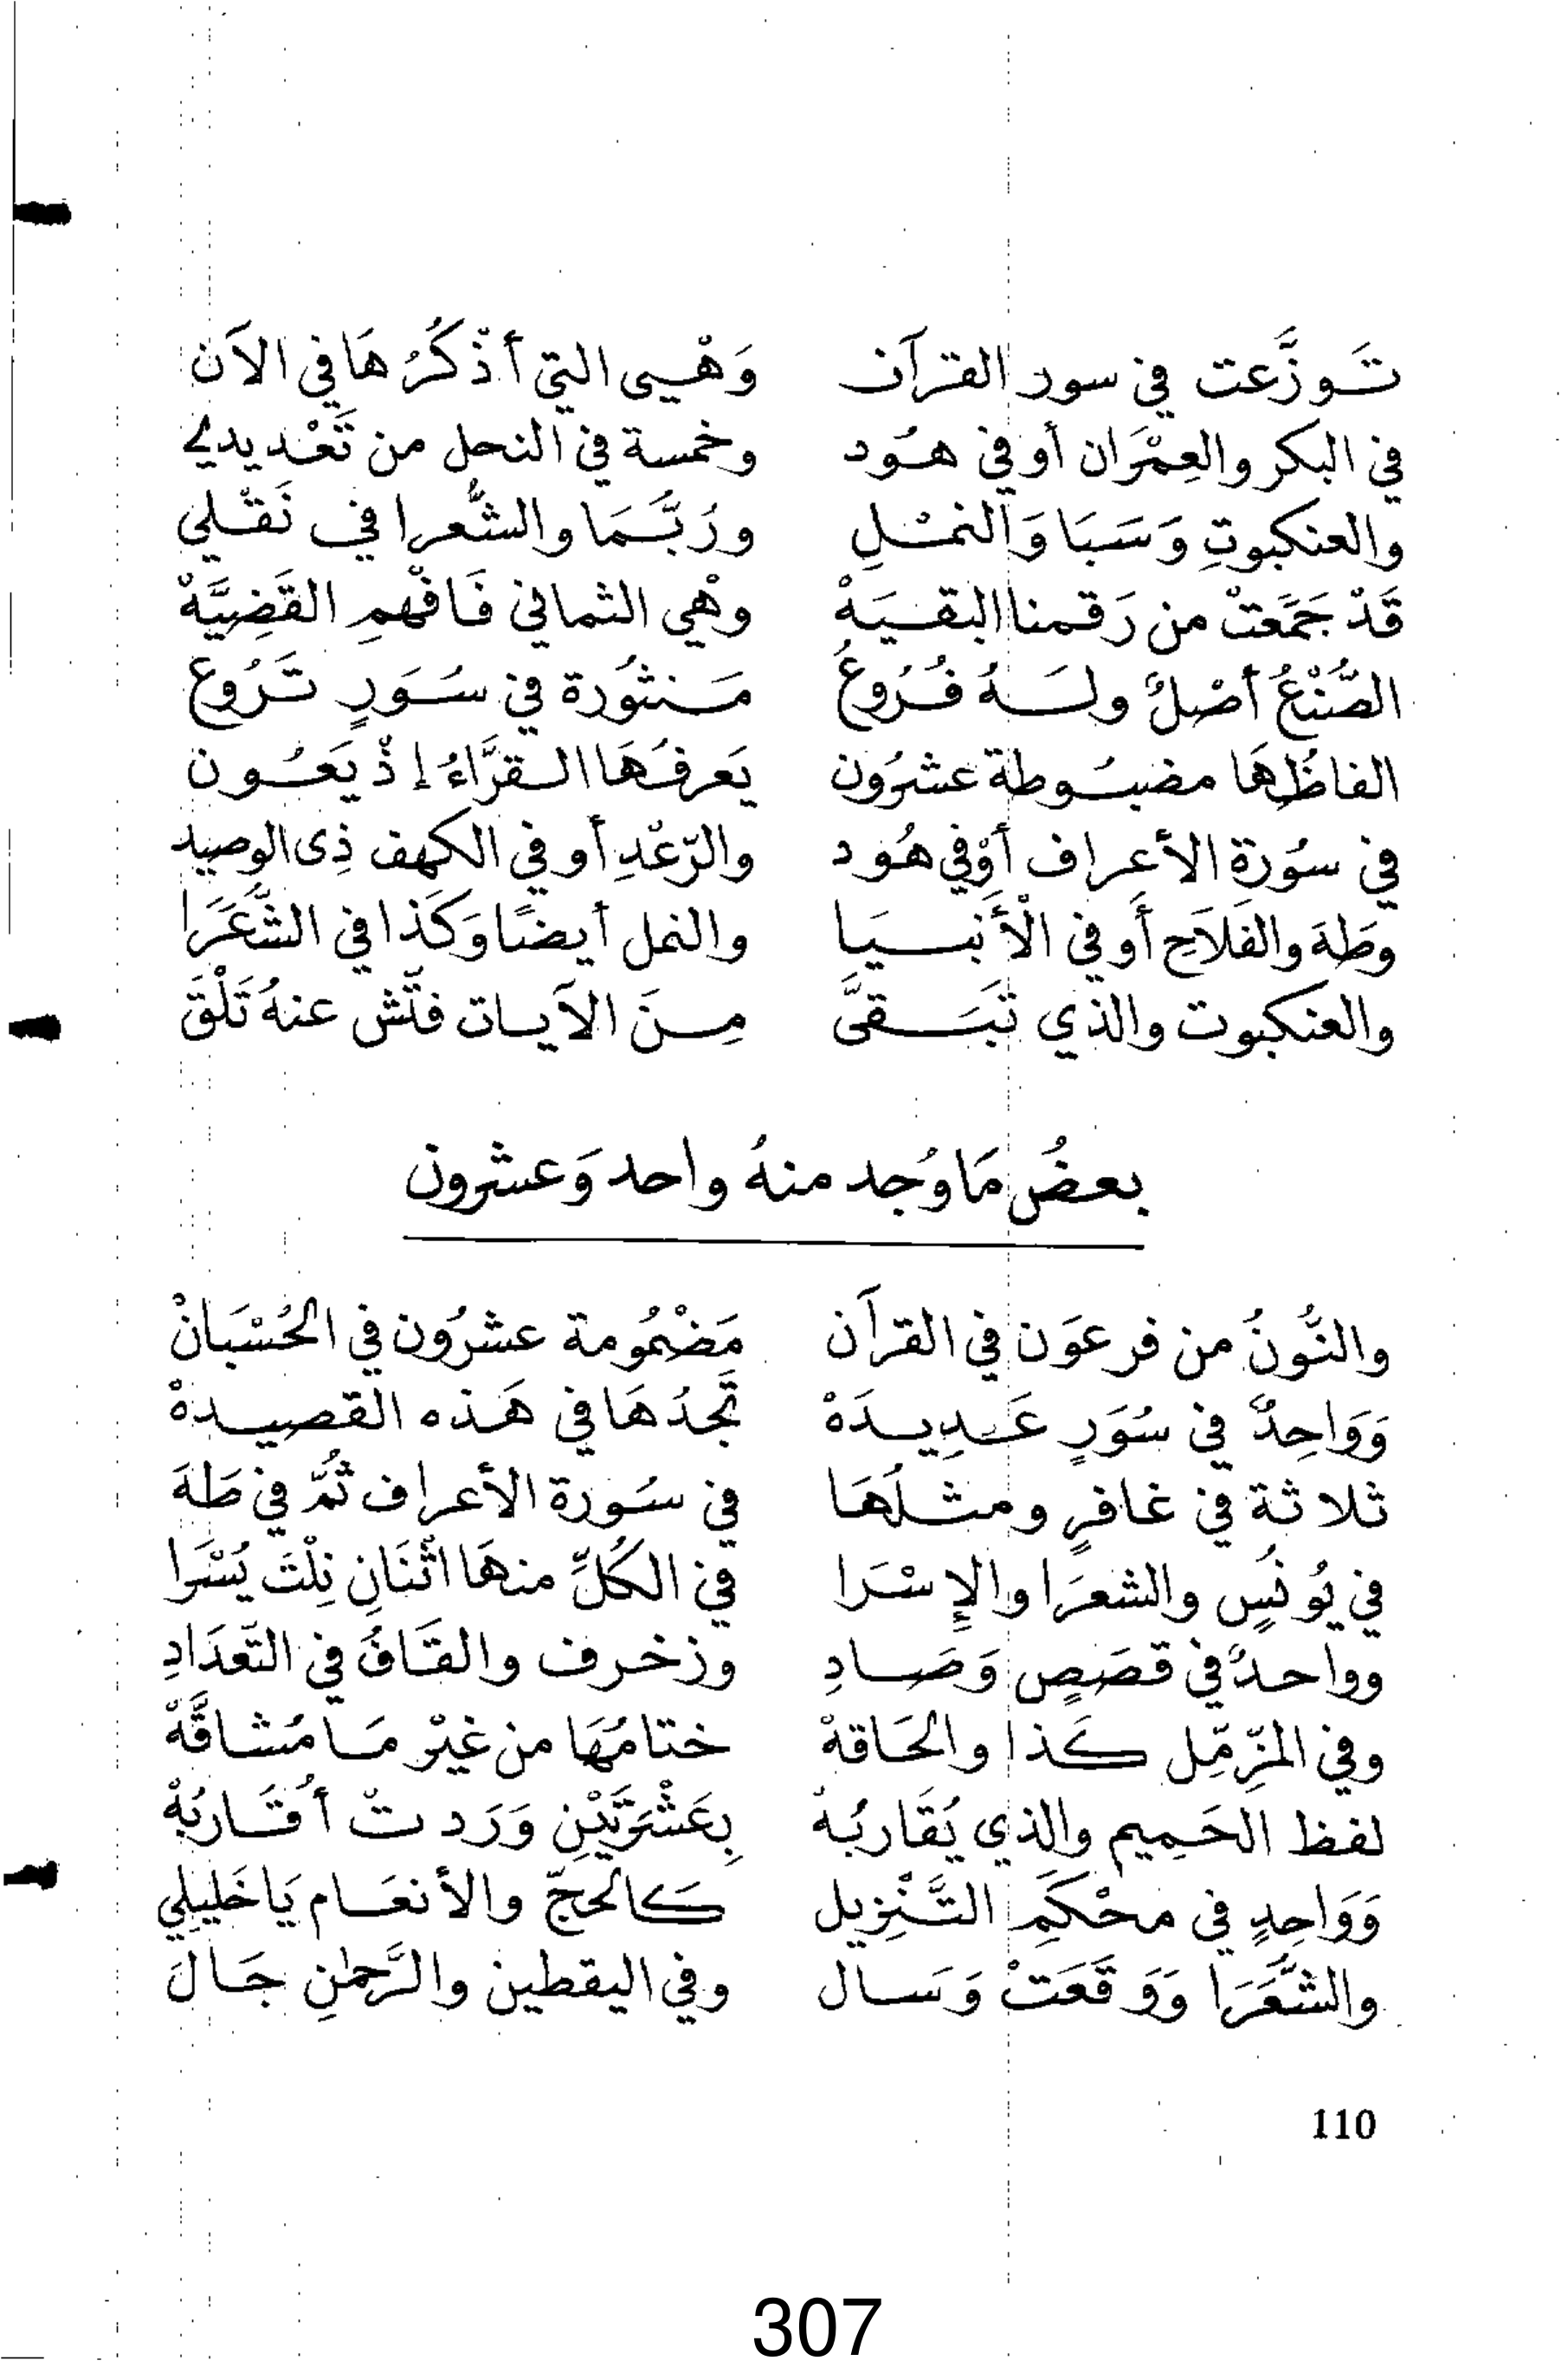 تَوزَّعت في سور القرآن وَهْيى التي أذْكُرُهَا في الآن
في البكر والعِمْرَان أو في هُود وخمسة في النحل من تَعْديدي
والعنكبوتِ وَسَبَا وَالنمْلِ ورُبَّمَا والشُّعرا في نَقْلي
قَدْ جَمَعَتْ من رَقمنا البقيَهْ وهْي الثماني فَافْهمِ القَضِيَّهْ
الصُّنْعُ أصْلٌ ولَهُ فُرُوعُ مَنثوُرة في سُوَرٍ تَرُوع
الفاظُهَا مضبُوطة عشرُون يَعرفُهَا القرَّاءُ إذْ يَعُون
في سوُرة الأعراف أوْفي هُود والرّعْدِ أو في الكهف ذِى الوصيد
وطَهَ والفَلاَحِ أو في الأَنبيَا والنمل أيضًا وَكَذا في الشُّعَرَا
والعنكبوت والذي تَبَقىَّ مِنَ الآيات فتِّش عنهُ تَلْقَ
بعضُ مَا وُجد منهُ واحد وَعشرون
والنُّونُ من فرعَون في القرآن مَضْمُومة عشرُون في الحُسْبَانْ
وَوَاحِدٌ في سُوَرٍ عَدِيدَهْ تَجدُهَا في هَذه القصيدهْ
ثلاثة في غافرٍ ومثلُهَا في سُورة الأعراف ثُمَّ في طَهَ
في يُونُسٍ والشعرَا والإِسْرَا في الكُلِّ منهَا اثْنَانِ نِلْتَ يُسْرَا
وواحدٌ في قصَصٍ وَصَادِ وزخرف والقَافُ في التّعْدَادِ
وفي المزِّمِّل كَذا والحَاقهْ ختامُهَا من غيْر مَا مُشاقَّهْ
لفظ الحَمِيم والذي يُقَاربُهْ بِعَشْرَتَيْنِ وَرَدتْ أقَاربُهْ
وَوَاحِدٍ في محْكَمِ التَّنْزِيل كَالحجّ والأنعَام يَا خَليلِي
والشُّعَرَا وَوَقَعَتْ وَسَال وفي اليقطين والرَّحمٰنِ جَالَ
110
307